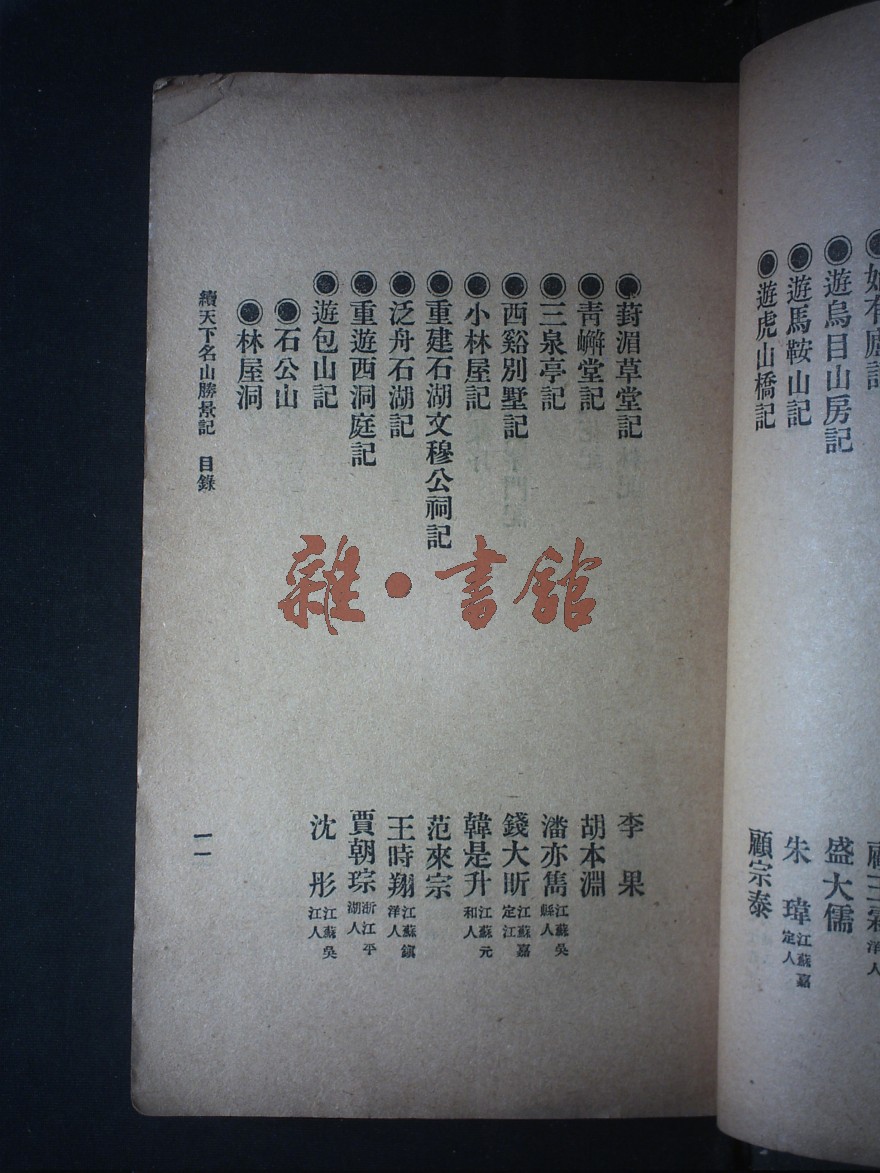 遊烏目山房記 盛大儒
遊馬鞍山記 朱瑋 江蘇嘉定人
遊虎山橋記 顧宗泰
葑湄草堂記 李果
青嶰堂記 胡本淵
三泉亭記 潘亦雋 江蘇吳縣人
西谿別墅記 錢大昕 江蘇嘉定江
小林屋記 韓是升 江蘇元和人
重建石湖文穆公祠記 范來宗
泛舟石湖記 王時翔 江蘇鎮洋人
重遊西洞庭記 賈朝琮 浙江平湖人
遊包山記 沈彤 江蘇吳江人
石公山
林屋洞
續天下名山勝景記 目錄 一一
雜·書館